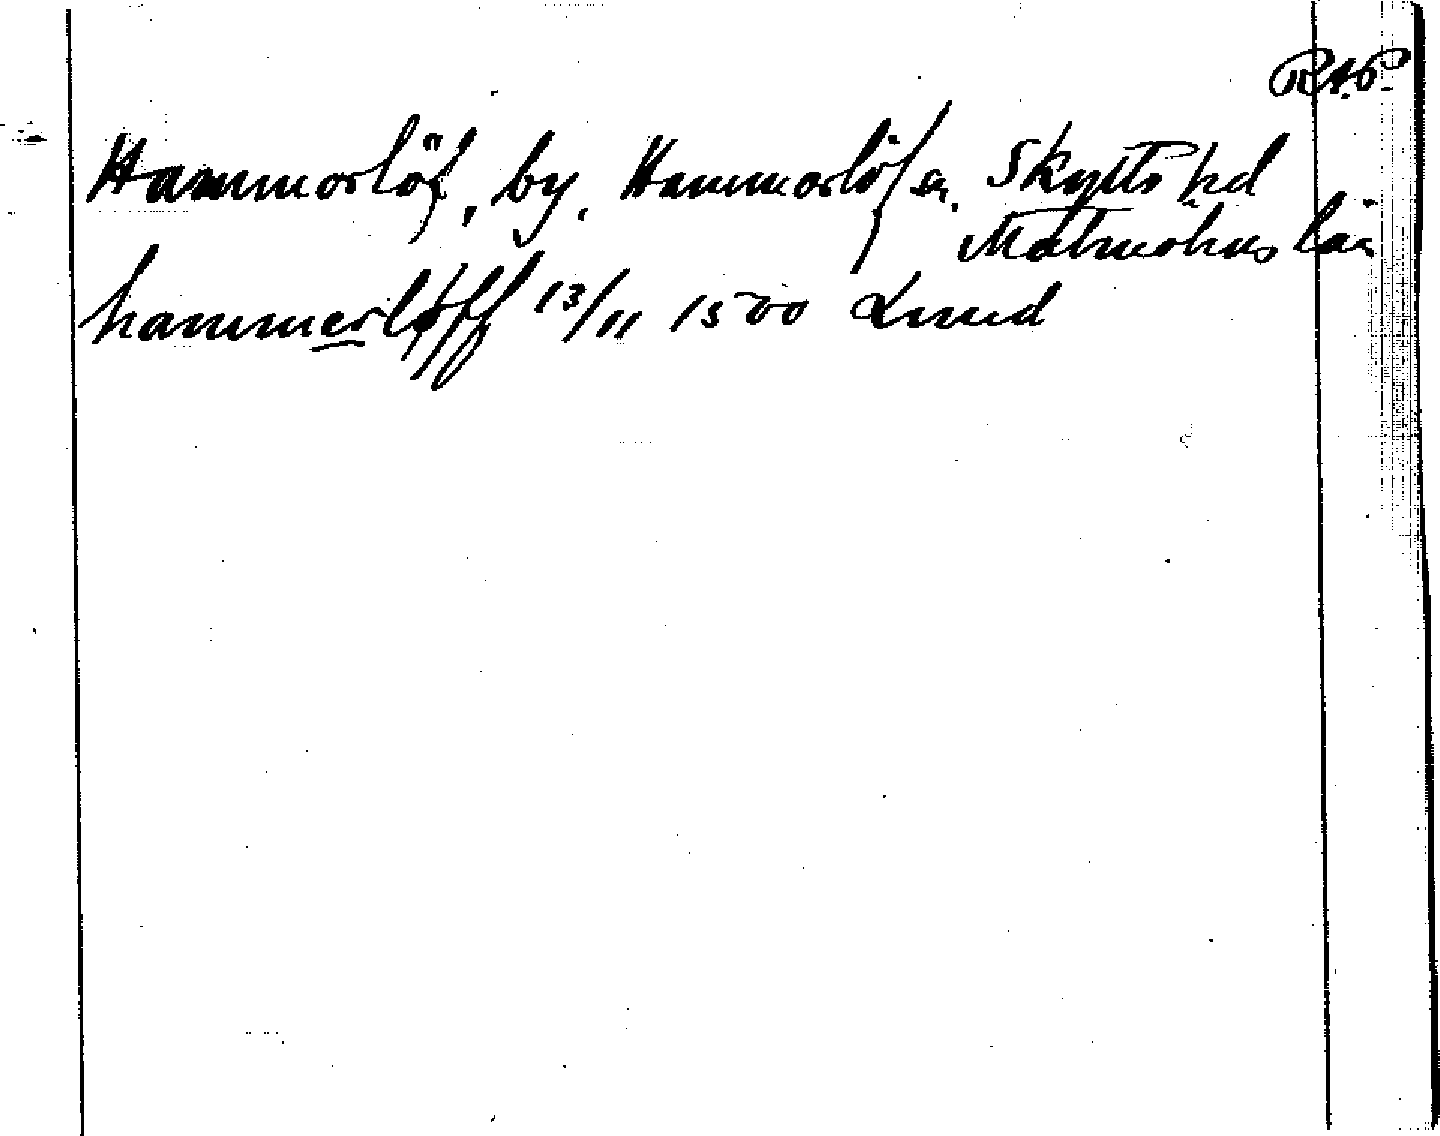 RAP.
Hammarlöf, by, Hammarlöf sn, Skytts hd
Malmöhus län
hammerløff 13/11 1500 Lund